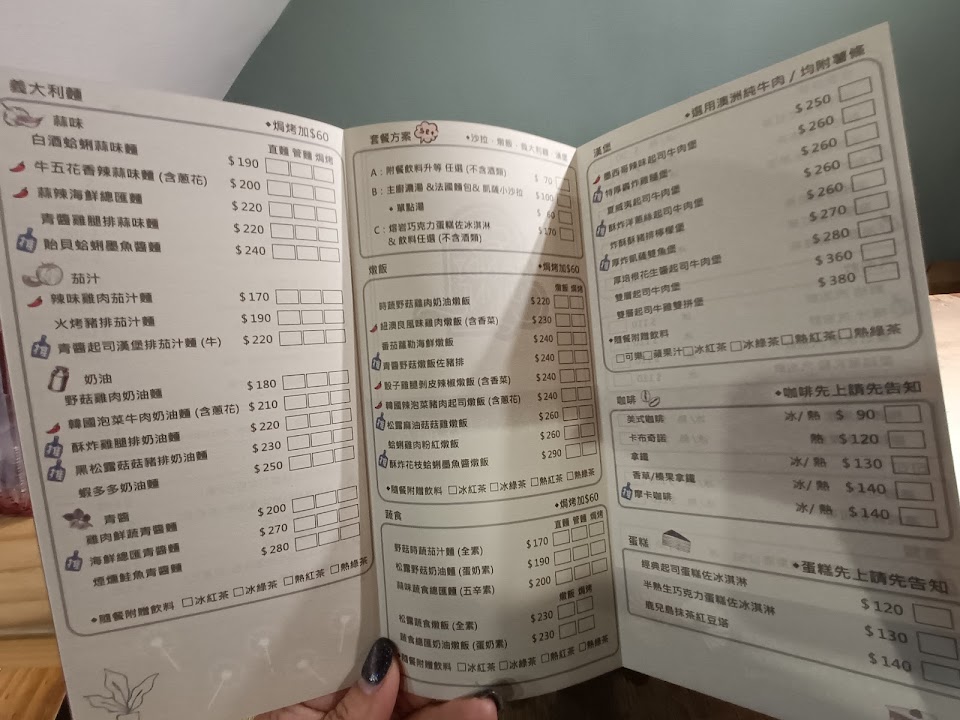 義大利麵
蒜味 ◆焗烤加$60
直麵 管麵 焗烤
白酒蛤蜊蒜味麵 $190
牛五花香辣蒜味麵 (含蔥花) $200
蒜辣海鮮總匯麵 $220
青醬雞腿排蒜味麵 $220
推 飴貝蛤蜊墨魚醬麵 $240
茄汁
辣味雞肉茄汁麵 $170
火烤豬排茄汁麵 $190
推 青醬起司漢堡排茄汁麵 (牛) $220
奶油
野菇雞肉奶油麵 $180
韓國泡菜牛肉奶油麵 (含蔥花) $210
推 酥炸雞腿排奶油麵 $220
推 黑松露菇菇豬排奶油麵 $230
蝦多多奶油麵 $250
青醬
雞肉鮮蔬青醬麵 $200
推 海鮮總匯青醬麵 $270
煙燻鮭魚青醬麵 $280
◆隨餐附贈飲料 □冰紅茶 □冰綠茶 □熱紅茶 □熱綠茶
套餐方案 SET ◆沙拉、燉飯、義大利麵、漢堡
A：附餐飲料升等 任選 (不含酒類) $ 70
B：主廚濃湯 &法國麵包& 凱薩小沙拉 $100
◆單點湯 $ 60
C：熔岩巧克力蛋糕佐冰淇淋 $170
& 飲料任選 (不含酒類)
燉飯 ◆焗烤加$60
燉飯 焗烤
時蔬野菇雞肉奶油燉飯 $220
紐澳良風味雞肉燉飯 (含香菜) $230
番茄蘿勒海鮮燉飯 $240
推 青醬野菇燉飯佐豬排 $240
骰子雞腿剝皮辣椒燉飯 (含香菜) $240
韓國辣泡菜豬肉起司燉飯 (含蔥花) $240
推 松露麻油菇菇雞燉飯 $260
蛤蜊雞肉粉紅燉飯 $260
推 酥炸花枝蛤蜊墨魚醬燉飯 $290
◆隨餐附贈飲料 □冰紅茶 □冰綠茶 □熱紅茶 □熱綠茶
蔬食 ◆焗烤加$60
直麵 管麵 焗烤
野菇時蔬茄汁麵 (全素) $170
松露野菇奶油麵 (蛋奶素) $190
蒜味蔬食總匯麵 (五辛素) $200
燉飯 焗烤
松露蔬食燉飯 (全素) $230
蔬食總匯奶油燉飯 (蛋奶素) $230
◆隨餐附贈飲料 □冰紅茶 □冰綠茶 □熱紅茶 □熱綠茶
漢堡 ◆選用澳洲純牛肉 / 均附薯條
墨西哥辣味起司牛肉堡 $250
推 特厚轟炸雞腿堡 $260
夏威夷起司牛肉堡 $260
推 酥炸洋蔥絲起司牛肉堡 $260
炸酥酥豬排檸檬堡 $260
推 厚炸凱薩雙魚堡 $270
厚培根花生醬起司牛肉堡 $280
雙層起司牛肉堡 $360
雙層起司牛雞雙拼堡 $380
◆隨餐附贈飲料
□可樂 □蘋果汁 □冰紅茶 □冰綠茶 □熱紅茶 □熱綠茶
咖啡 ◆咖啡先上請先告知
美式咖啡 冰/ 熱 $ 90
卡布奇諾 熱 $120
拿鐵 冰/ 熱 $130
香草/榛果拿鐵 冰/ 熱 $140
推 摩卡咖啡 冰/ 熱 $140
蛋糕 ◆蛋糕先上請先告知
經典起司蛋糕佐冰淇淋 $120
半熟生巧克力蛋糕佐冰淇淋 $130
鹿兒島抹茶紅豆塔 $140